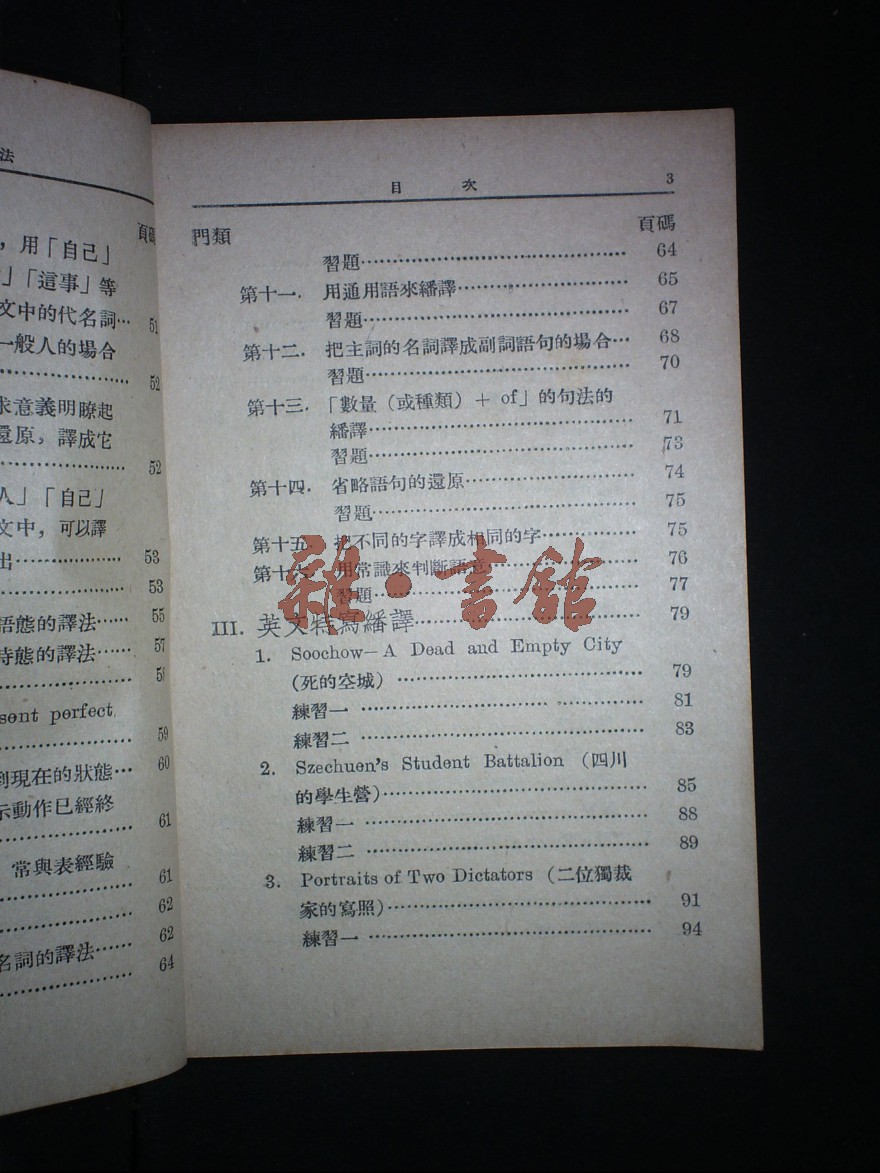 法
頁碼
，用「自己」
」「這事」等
文中的代名詞… 51
一般人的場合
…… 52
求意義明瞭起
還原，譯成它
…… 52
人」「自己」
文中，可以譯
出…… 53
…… 53
語態的譯法…… 55
時態的譯法…… 57
……
sent perfect
…… 59
到現在的狀態… 60
示動作已經終
…… 61
常與表經驗
…… 61
…… 62
名詞的譯法…… 62
…… 64
目 次 3
門類 頁碼
習題…… 64
第十一. 用通用語來繙譯…… 65
習題…… 67
第十二. 把主詞的名詞譯成副詞語句的場合… 68
習題…… 70
第十三. 「數量（或種類）＋ of」的句法的
繙譯…… 71
習題…… 73
第十四. 省略語句的還原…… 74
習題…… 75
第十五 把不同的字譯成相同的字…… 75
第十六 用常識來判斷語意…… 76
習題…… 77
雜·書館
III. 英文特寫繙譯…… 79
1. Soochow—A Dead and Empty City
(死的空城) …… 79
練習一 …… 81
練習二 …… 83
2. Szechuen's Student Battalion (四川
的學生營)…… 85
練習一 …… 88
練習二 …… 89
3. Portraits of Two Dictators (二位獨裁
家的寫照)…… 91
練習一 …… 94